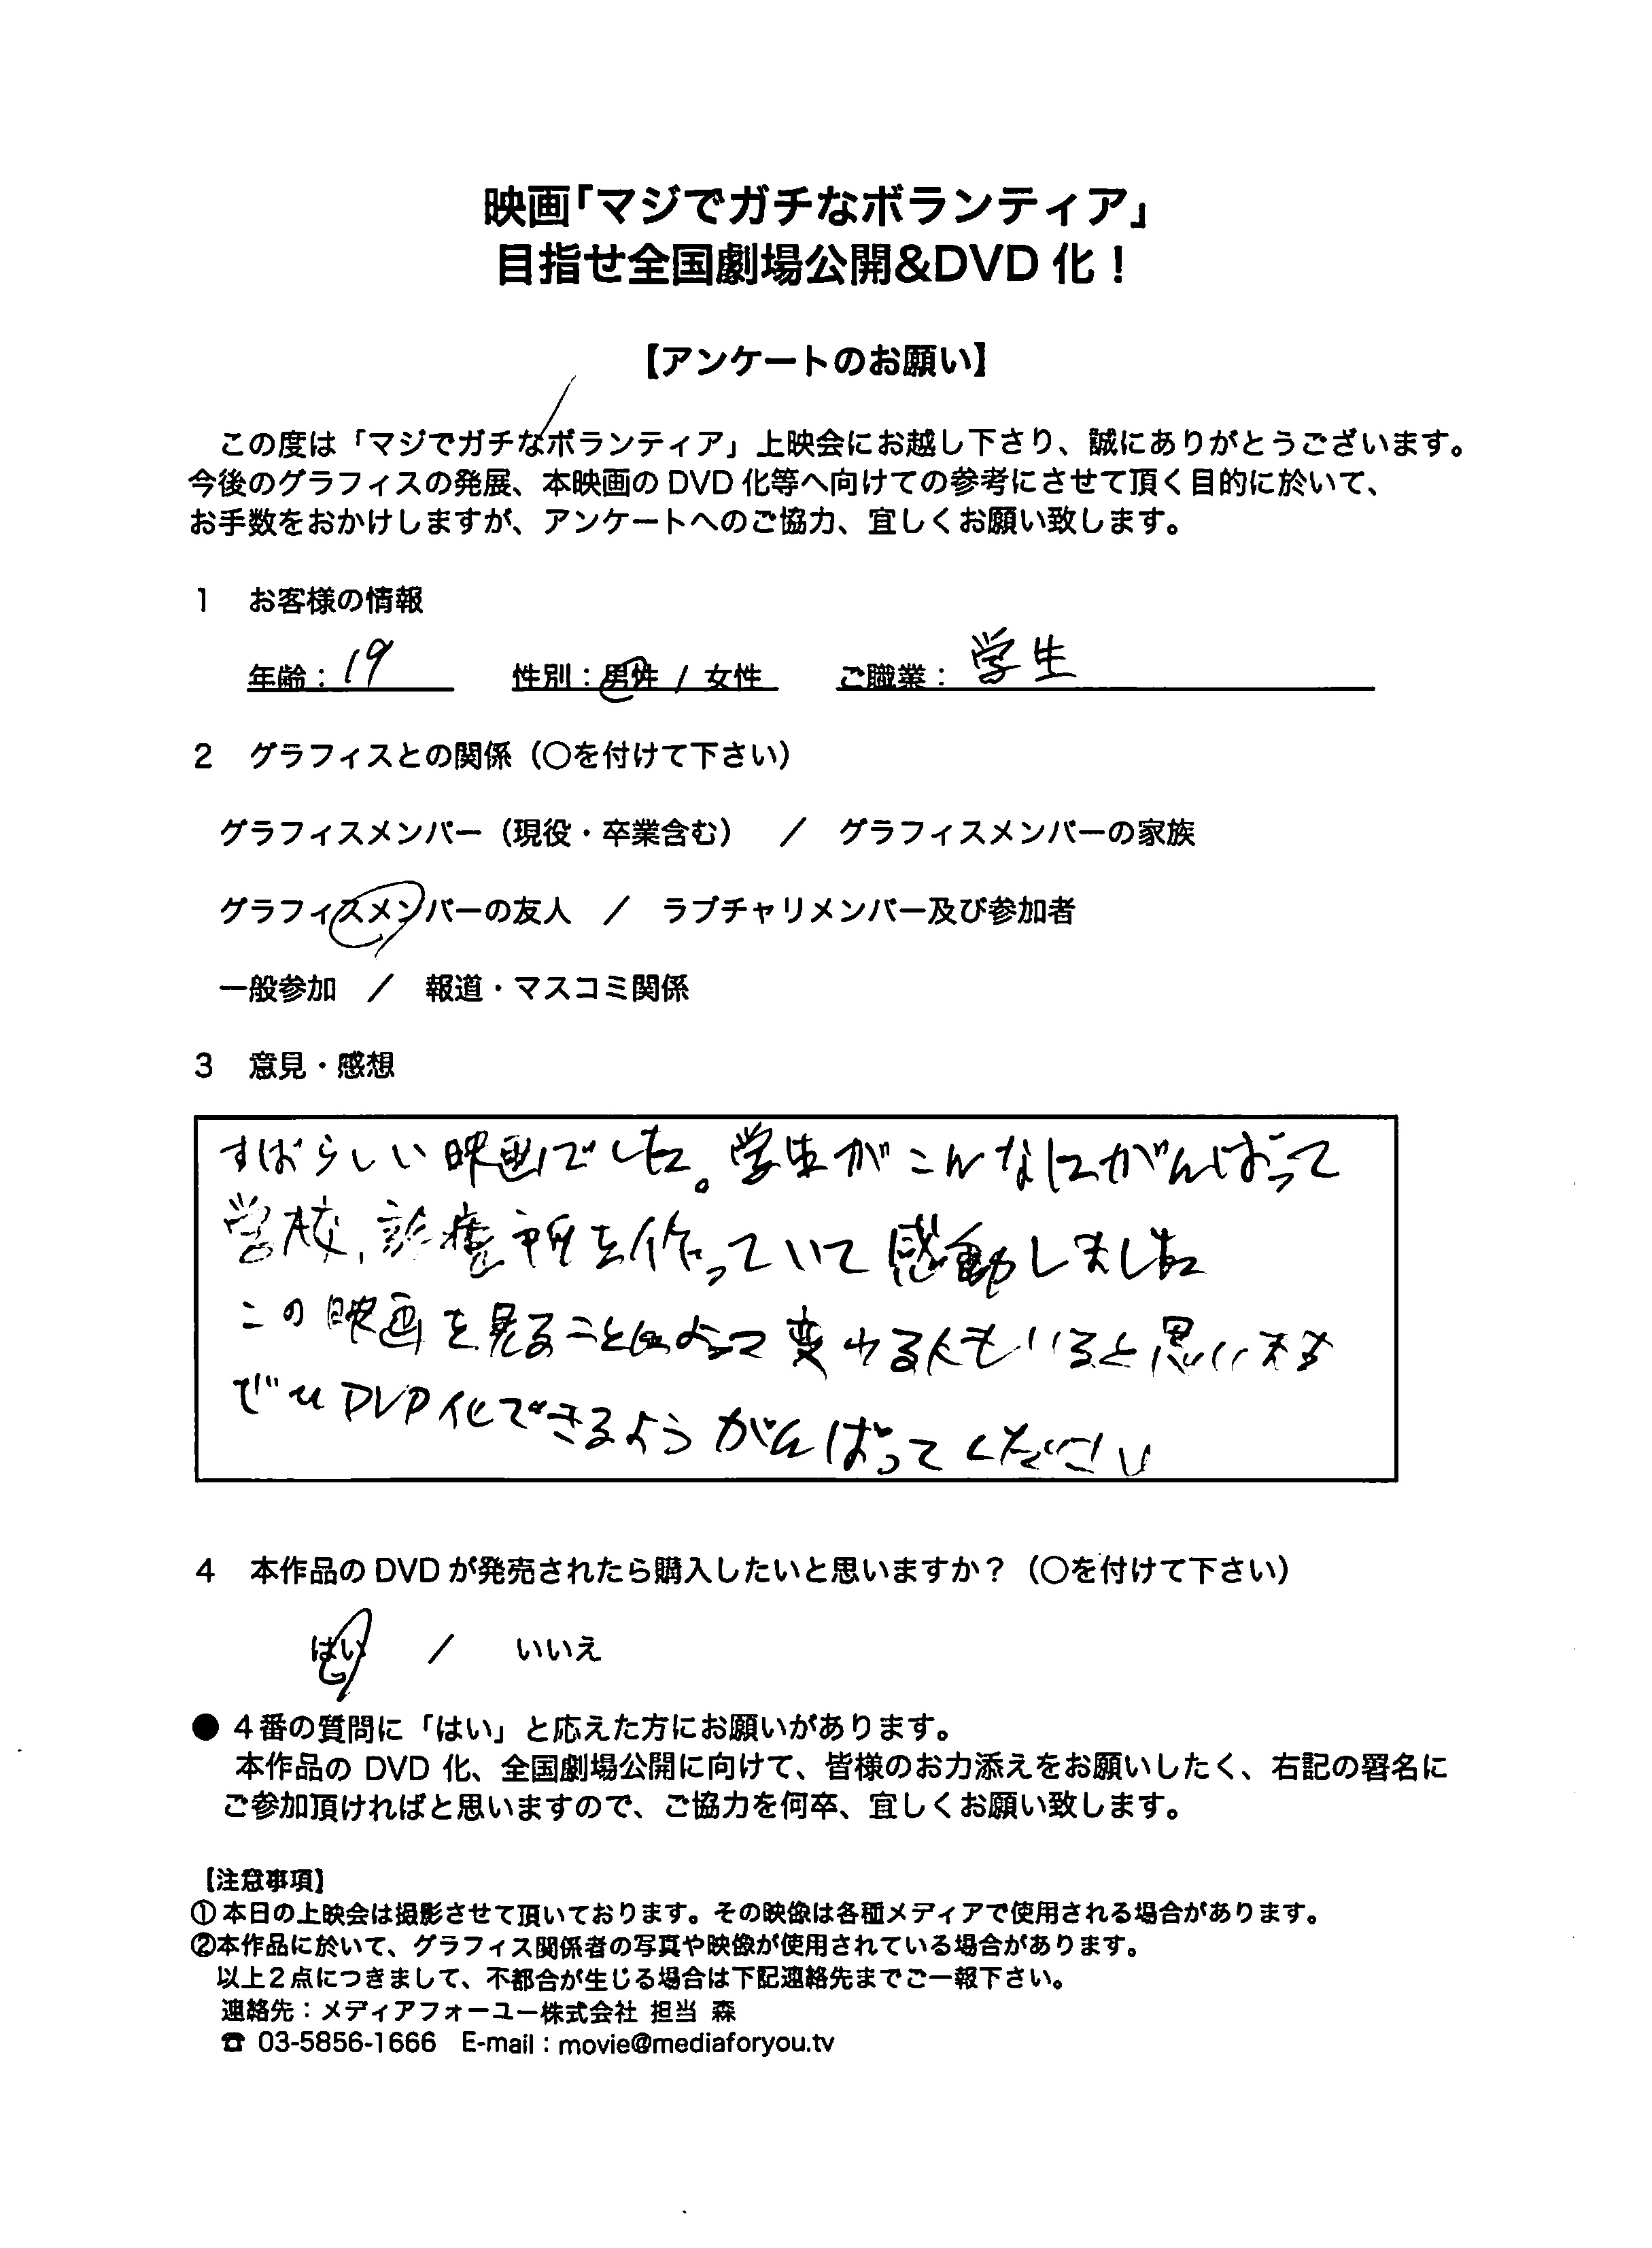 映画「マジでガチなボランティア」
目指せ全国劇場公開&DVD 化！
【アンケートのお願い】
この度は「マジでガチなボランティア」上映会にお越し下さり、誠にありがとうございます。
今後のグラフィスの発展、本映画の DVD 化等へ向けての参考にさせて頂く目的に於いて、
お手数をおかけしますが、アンケートへのご協力、宜しくお願い致します。
1 お客様の情報
年齢：19 性別：男性 / 女性 ご職業：学生
2 グラフィスとの関係（○を付けて下さい）
グラフィスメンバー（現役・卒業含む） ／ グラフィスメンバーの家族
グラフィスメンバーの友人 ／ ラブチャリメンバー及び参加者
一般参加 ／ 報道・マスコミ関係
3 意見・感想
すばらしい映画でした。学生がこんなにがんばって
学校、診療所を作っていて感動しました
この映画を見ることによって変わる人もいると思います
ぜひDVD化できるようがんばってください
4 本作品の DVD が発売されたら購入したいと思いますか？（○を付けて下さい）
はい ／ いいえ
● 4番の質問に「はい」と応えた方にお願いがあります。
本作品の DVD 化、全国劇場公開に向けて、皆様のお力添えをお願いしたく、右記の署名に
ご参加頂ければと思いますので、ご協力を何卒、宜しくお願い致します。
【注意事項】
①本日の上映会は撮影させて頂いております。その映像は各種メディアで使用される場合があります。
②本作品に於いて、グラフィス関係者の写真や映像が使用されている場合があります。
以上2点につきまして、不都合が生じる場合は下記連絡先までご一報下さい。
連絡先：メディアフォーユー株式会社 担当 森
☎ 03-5856-1666 E-mail：movie@mediaforyou.tv